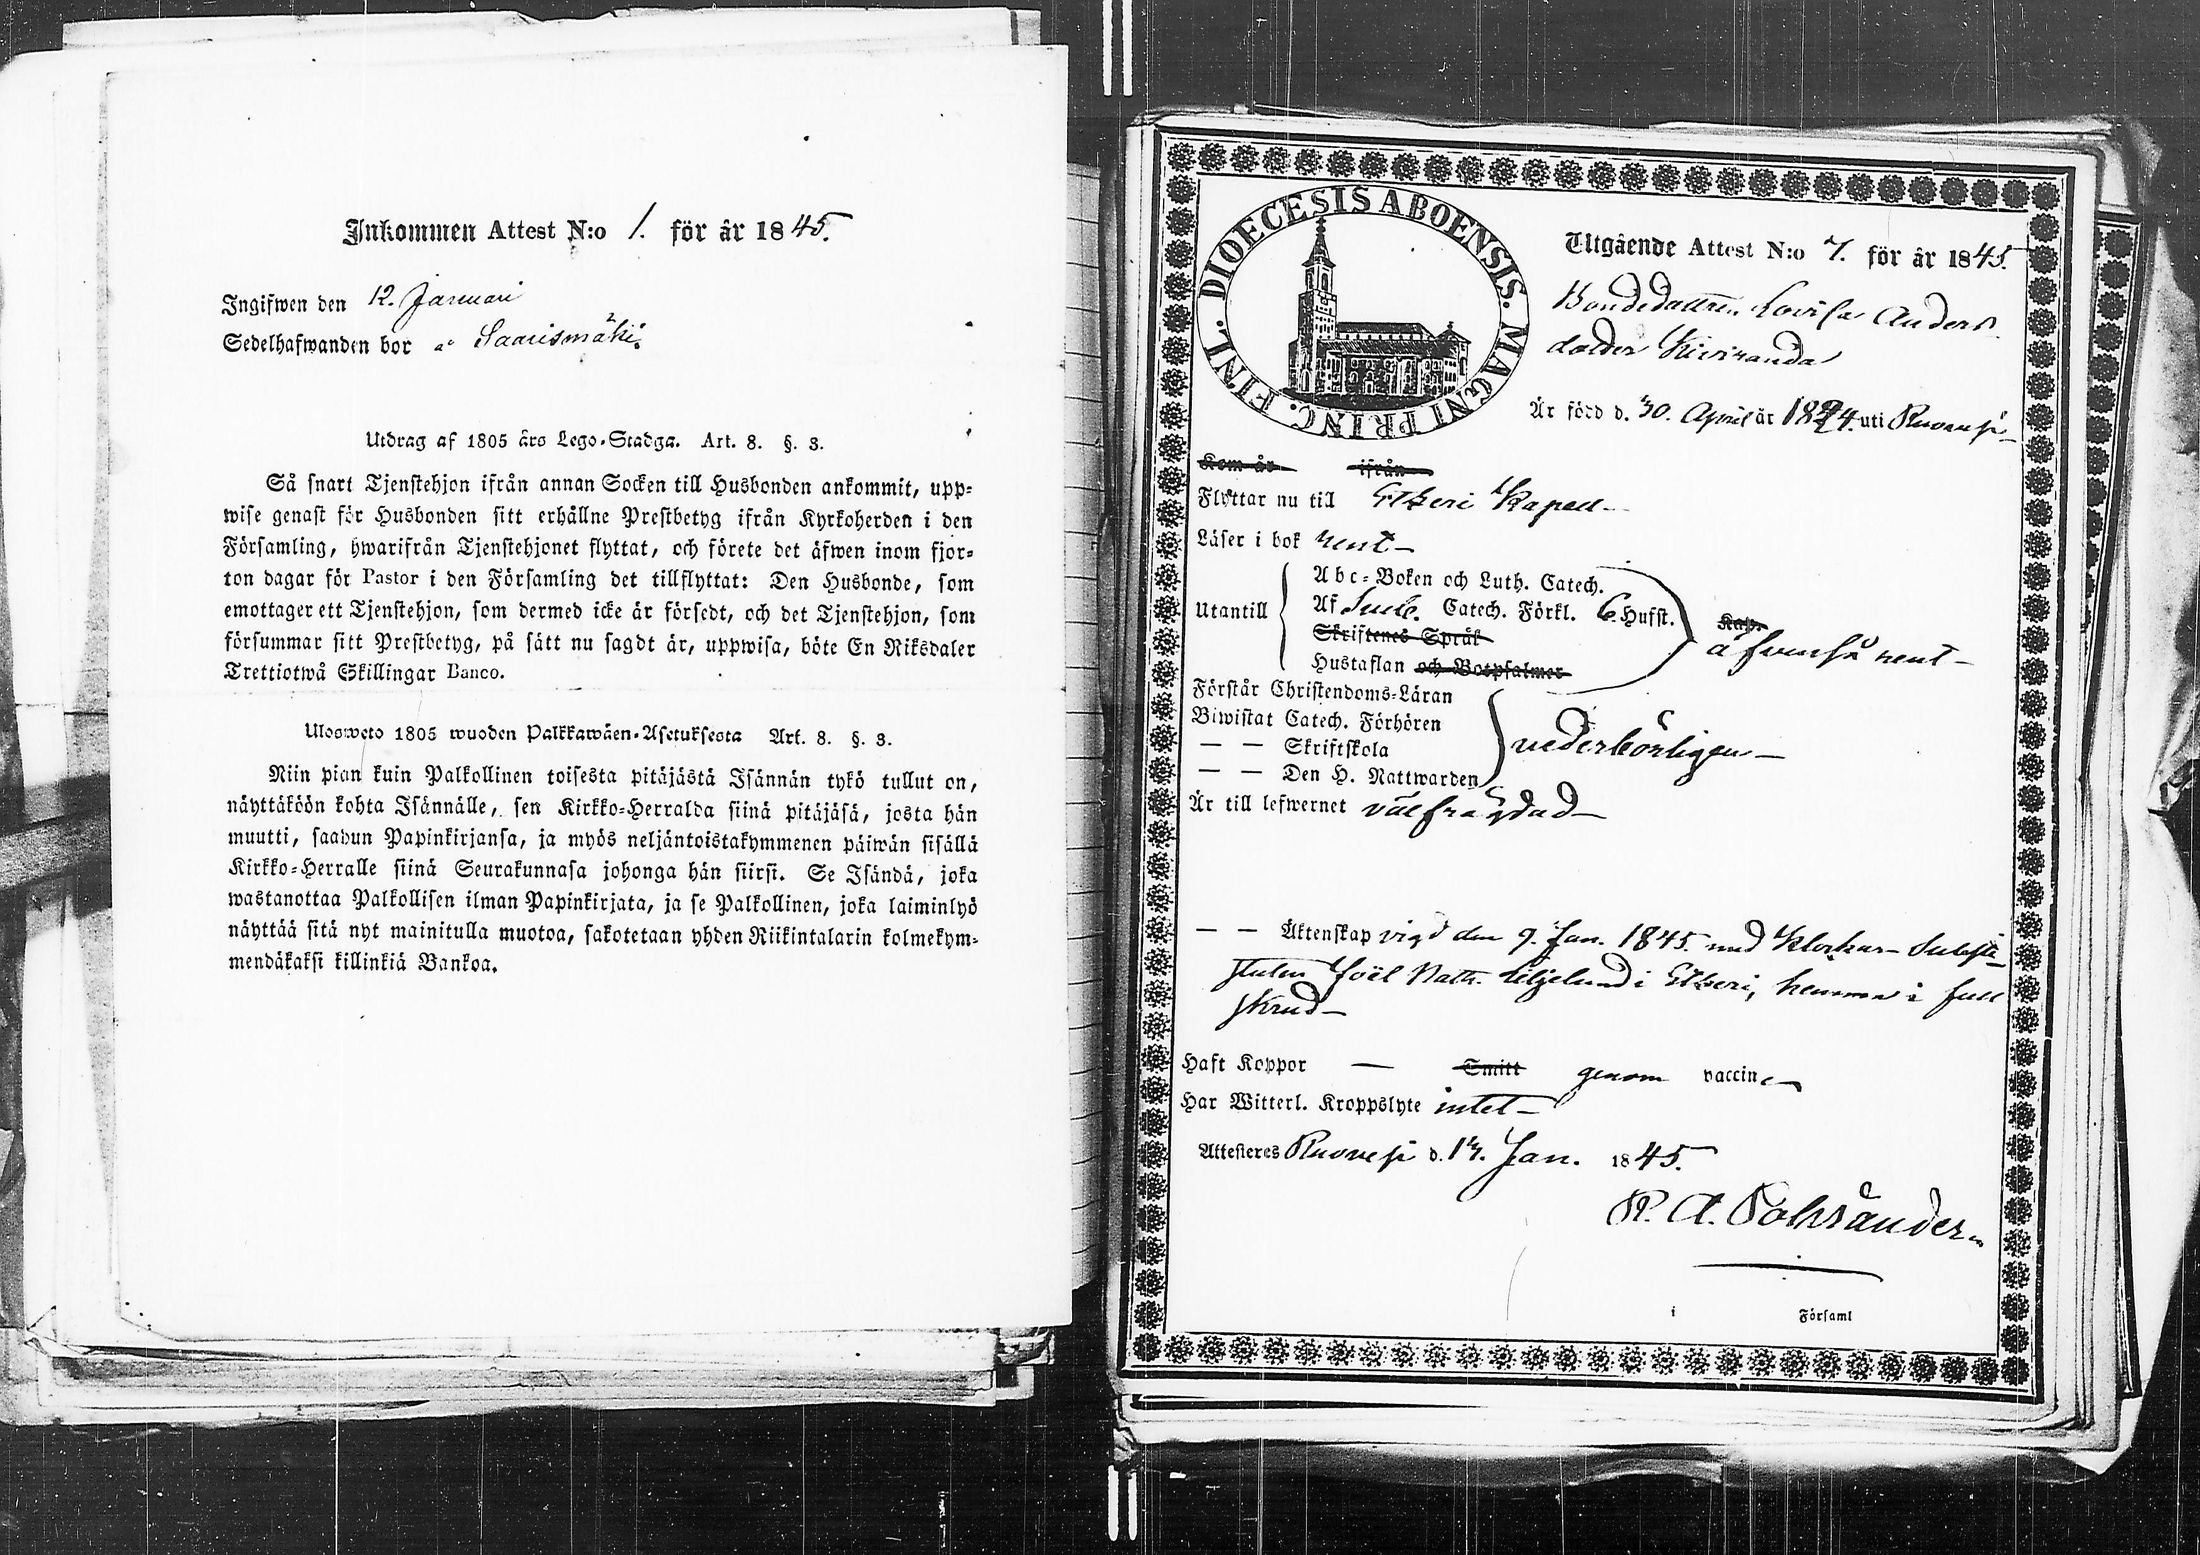 Inkommen Attest N:o 1. för år 1845.
Ingifwen den 12. Januari
Sedelhafwanden bor å Saarismäki.
Utdrag af 1805 års Lego-Stadga. Art. 8. §. 3.
Så snart Tjenstehjon ifrån annan Socken till Husbonden ankommit, upp-
wise genast för Husbonden sitt erhållne Prestbetyg ifrån Kyrkoherden i den
Församling, hwarifrån Tjenstehjonet flyttat, och förete det äfwen inom fjor-
ton dagar för Pastor i den Församling det tillflyttat: Den Husbonde, som
emottager ett Tjenstehjon, som dermed icke är försedt, och det Tjenstehjon, som
försummar sitt Prestbetyg, på sätt nu sagdt är, uppwisa, böte En Riksdaler
Trettiotwå Skillingar Banco.
Ulosweto 1805 wuoden Palkkawäen-Asetuksesta Art. 8. §. 3.
Niin pian kuin Palkollinen toisesta pitäjästä Isännän tykö tullut on,
näyttäköön kohta Isännälle, sen Kirkko-Herralda siinä pitäjäsä, josta hän
muutti, saadun Papinkirjansa, ja myös neljäntoistakymmenen päiwän sisällä
Kirkko-Herralle siinä Seurakunnasa johonga hän siirsi. Se Isändä, joka
wastanottaa Palkollisen ilman Papinkirjata, ja se Palkollinen, joka laiminlyö
näyttää sitä nyt mainitulla muotoa, sakotetaan yhden Riikintalarin kolmekym-
mendäkaksi killinkiä Bankoa.
DIOECESIS ABOENSIS. MAGNI PRINC. FINL.
Utgående Attest N:o 7. för år 1845.
Bondedottren Lovisa Anders
dotter Kiviranda
Är född d. 30. April år 1824. uti Ruovesi
Kom år ifrån
Flyttar nu till Etseri Kapell
Läser i bok rent
Utantill
Abc-Boken och Luth. Catech.
Af Sveb. Catech. Förkl. 6. Hufst.
Skriftenes Språk
Hustaflan och Botpsalmer
Kap.
äfvenså rent
Förstår Christendoms-Läran
Biwistat Catech. Förhören
— — Skriftskola
— — Den H. Nattwarden
vederbörligen
Är till lefwernet välfrägdad
— — Äktenskap vigd den 9. Jan. 1845 med Klockar-Substi-
tuten Joël Nath. Liljelund i Etseri, hemma i full
skrud
Haft Koppor — Smitt genom vaccine
Har Witterl. Kroppslyte intet
Attesteras Ruovesi d. 13. Jan. 1845.
i Församl